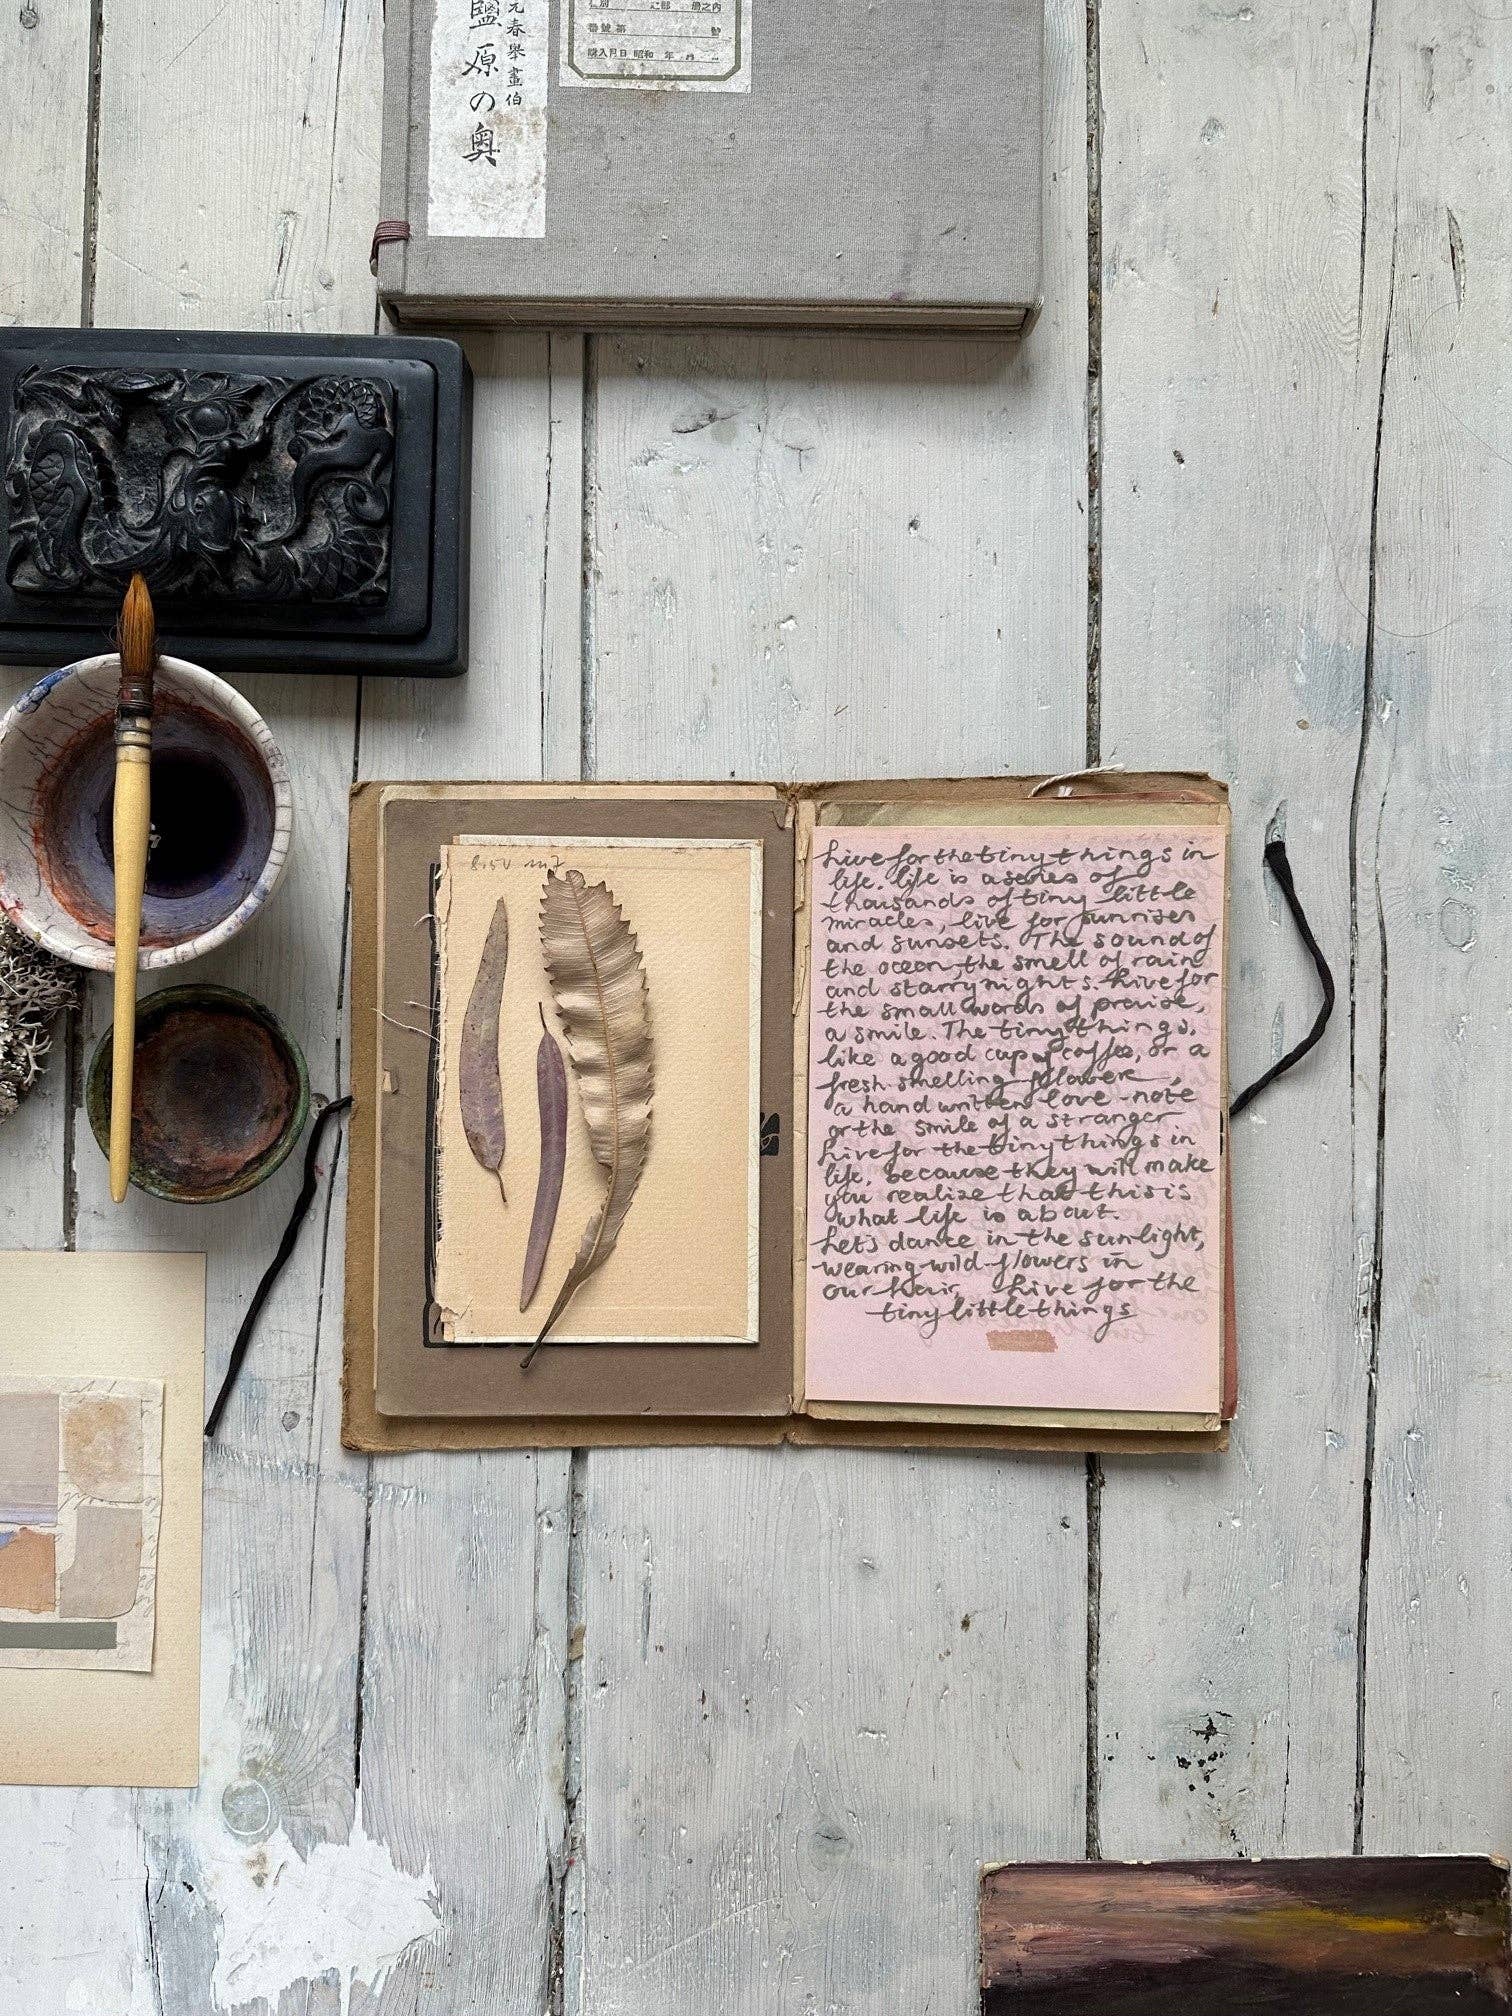 鹽原の奥
元春舉畫伯
番號 第 號
購入月日 昭和 年 月
Live for the tiny things in
life. life is a series of
thousands of tiny little
miracles, live for sunrises
and sunsets. The sound of
the ocean, the smell of rain
and starry nights. Live for
the small words of praise,
a smile. The tiny things.
like a good cup of coffee, or a
fresh smelling flower,
a hand written love-note
or the smile of a stranger
Live for the tiny things in
life, because they will make
you realize that this is
what life is about.
Let's dance in the sunlight,
wearing wild flowers in
our hair, Live for the
tiny little things